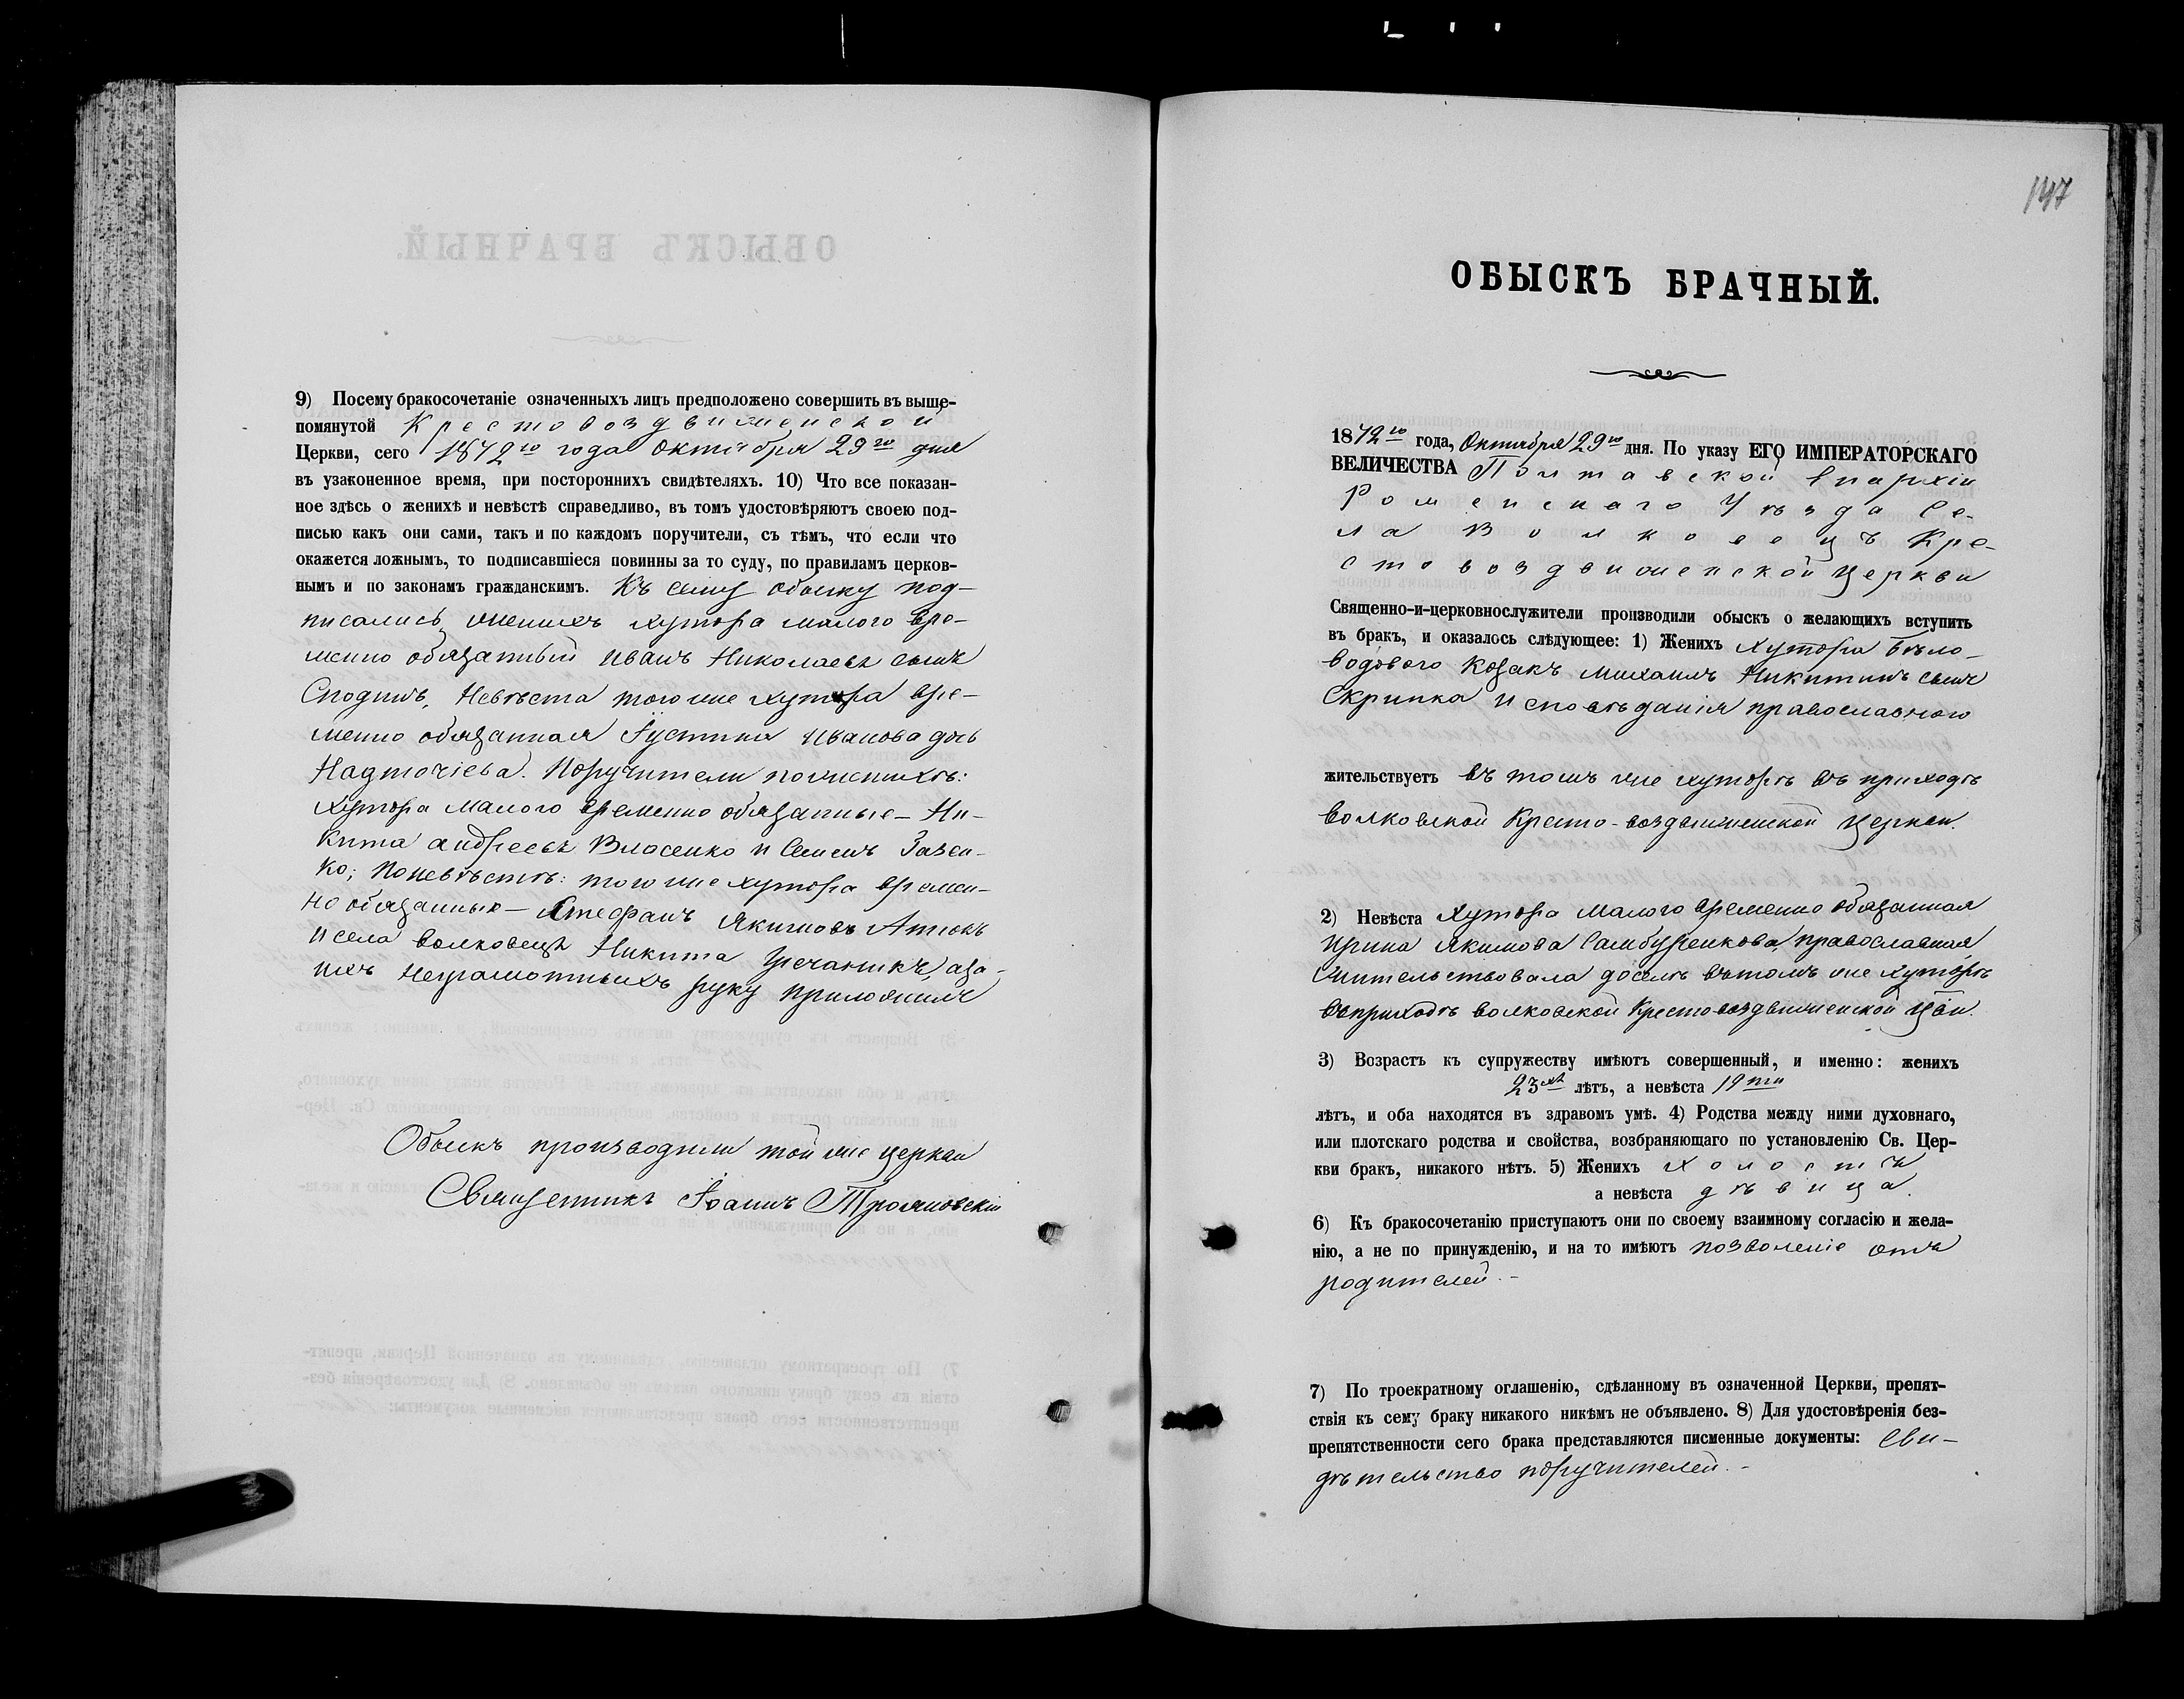 9) Посему бракосочетаніе означенныхъ лицъ предположено совершить въ выше-
помянутой Крестовоздвиженской
Церкви, сего 1872го года Октября 29го дня
въ узаконенное время, при постороннихъ свидѣтеляхъ. 10) Что все показан-
ное здѣсь о женихѣ и невѣстѣ справедливо, въ томъ удостовѣряютъ своею под-
писью какъ они сами, такъ и по каждомъ поручители, съ тѣмъ, что если что
окажется ложнымъ, то подписавшіеся повинны за то суду, по правиламъ церков-
нымъ и по законамъ гражданскимъ. Къ сему обыску под-
писались женихъ хутора малого вре-
менно обязанный Иванъ Николаевъ сынъ
Сподинъ, Невѣста того же хутора вре-
менно обязанная Іустина Иванова дочь
Надточіева. Поручители по женихѣ:
Хутора Малого временно обязанные – Ни-
кита Андреевъ Власенко и Семенъ
ко; по невѣстѣ: того же хутора времен-
но обязанные – Стефанъ Якимовъ
и села Волковецъ Никита Гречаникъ, а за
нихъ неграмотныхъ руку приложилъ
Обыскъ производили той же церкви
Священникъ Іоаннъ Трояновскій
147
ОБЫСКЪ БРАЧНЫЙ.
1872го года, Октября 29го дня. По указу ЕГО ИМПЕРАТОРСКАГО
ВЕЛИЧЕСТВА Полтавской Епархіи
Роменскаго Уѣзда Се-
ла Волковецъ Кре-
стовоздвиженской Церкви
Священно-и-церковнослужители производили обыскъ о желающихъ вступить
въ бракъ, и оказалось слѣдующее: 1) Женихъ Хутора Бѣло-
водового Козакъ Михаилъ Никитинъ сынъ
Скрипка Исповѣданія православного
жительствуетъ въ томъ же хуторѣ въ приходѣ
Волковской Кресто-воздвиженской Церкви.
2) Невѣста Хутора Малого временно обязанная
Ирина Якимова Самбуренкова, православная,
жительствовала доселѣ въ томъ же хуторѣ
въ приходѣ Волковской Крестовоздвиженской Цви.
3) Возрастъ къ супружеству имѣютъ совершенный, и именно: женихъ
23хъ лѣтъ, а невѣста 19ти
лѣтъ, и оба находятся въ здравомъ умѣ. 4) Родства между ними духовнаго,
или плотскаго родства и свойства, возбраняющаго по установленію Св. Цер-
кви бракъ, никакого нѣтъ. 5) Женихъ холостъ
а невѣста дѣвица.
6) Къ бракосочетанію приступаютъ они по своему взаимному согласію и жела-
нію, а не по принужденію, и на то имѣютъ позволеніе отъ
родителей. –
7) По троекратному оглашенію, сдѣланному въ означенной Церкви, препят-
ствія къ сему браку никакого никѣмъ не объявлено. 8) Для удостовѣренія без-
препятственности сего брака представляются писменные документы: Сви-
дѣтельство поручителей. –